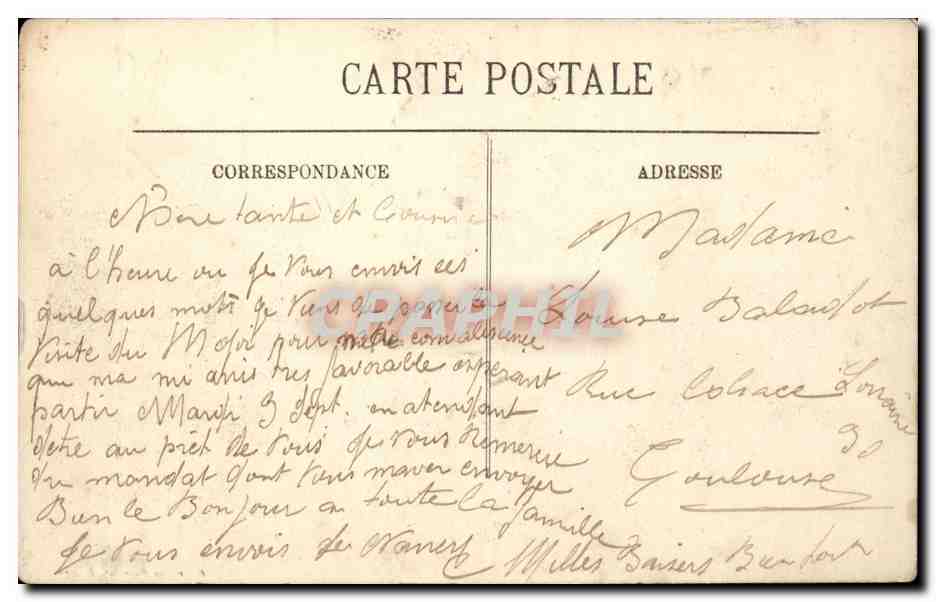 CARTE POSTALE
CORRESPONDANCE
ADRESSE
tante et Cousine
à l'heure ou je vous envois ses
quelques mots je viens de passer la
visite du Major pour convalisence
qui ma mi avis tres favorable esperant
partir Mardi 3 Sept. en atendant
detre au prèt de vous je vous remercie
du mandat dont vous maver envoyer
Bien le Bonjour a toute la famille
Je vous envois de Milles Baisers Bien fort
Madame
Louise Baladot
Rue Alsace Lorraine
30
Toulouse
CRAPHIL